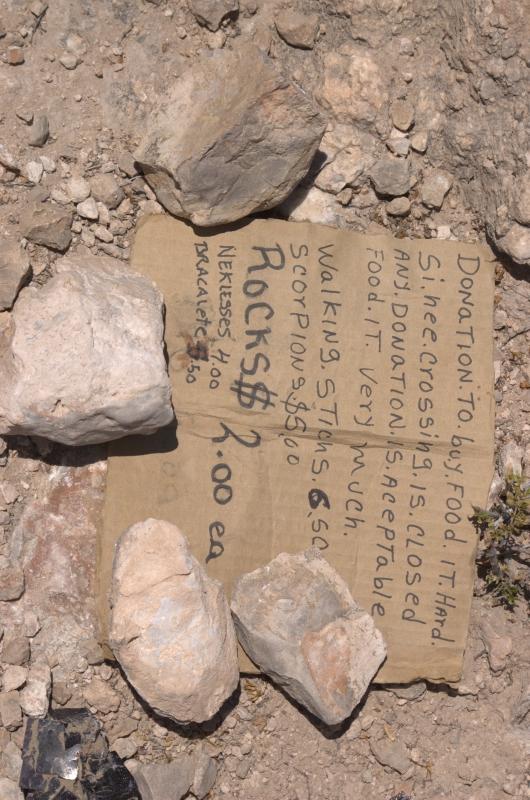 DONATION.TO.buy.FOOD.IT.HARD.
Si.nee.crossing.is.closed
ANY.DONATION.is.AcepTable
FOOD.IT very much.
Walking.STicks.6.50
Scorpions.$5.00
Rocks$ 2.00 ea
Neklesses 4.00